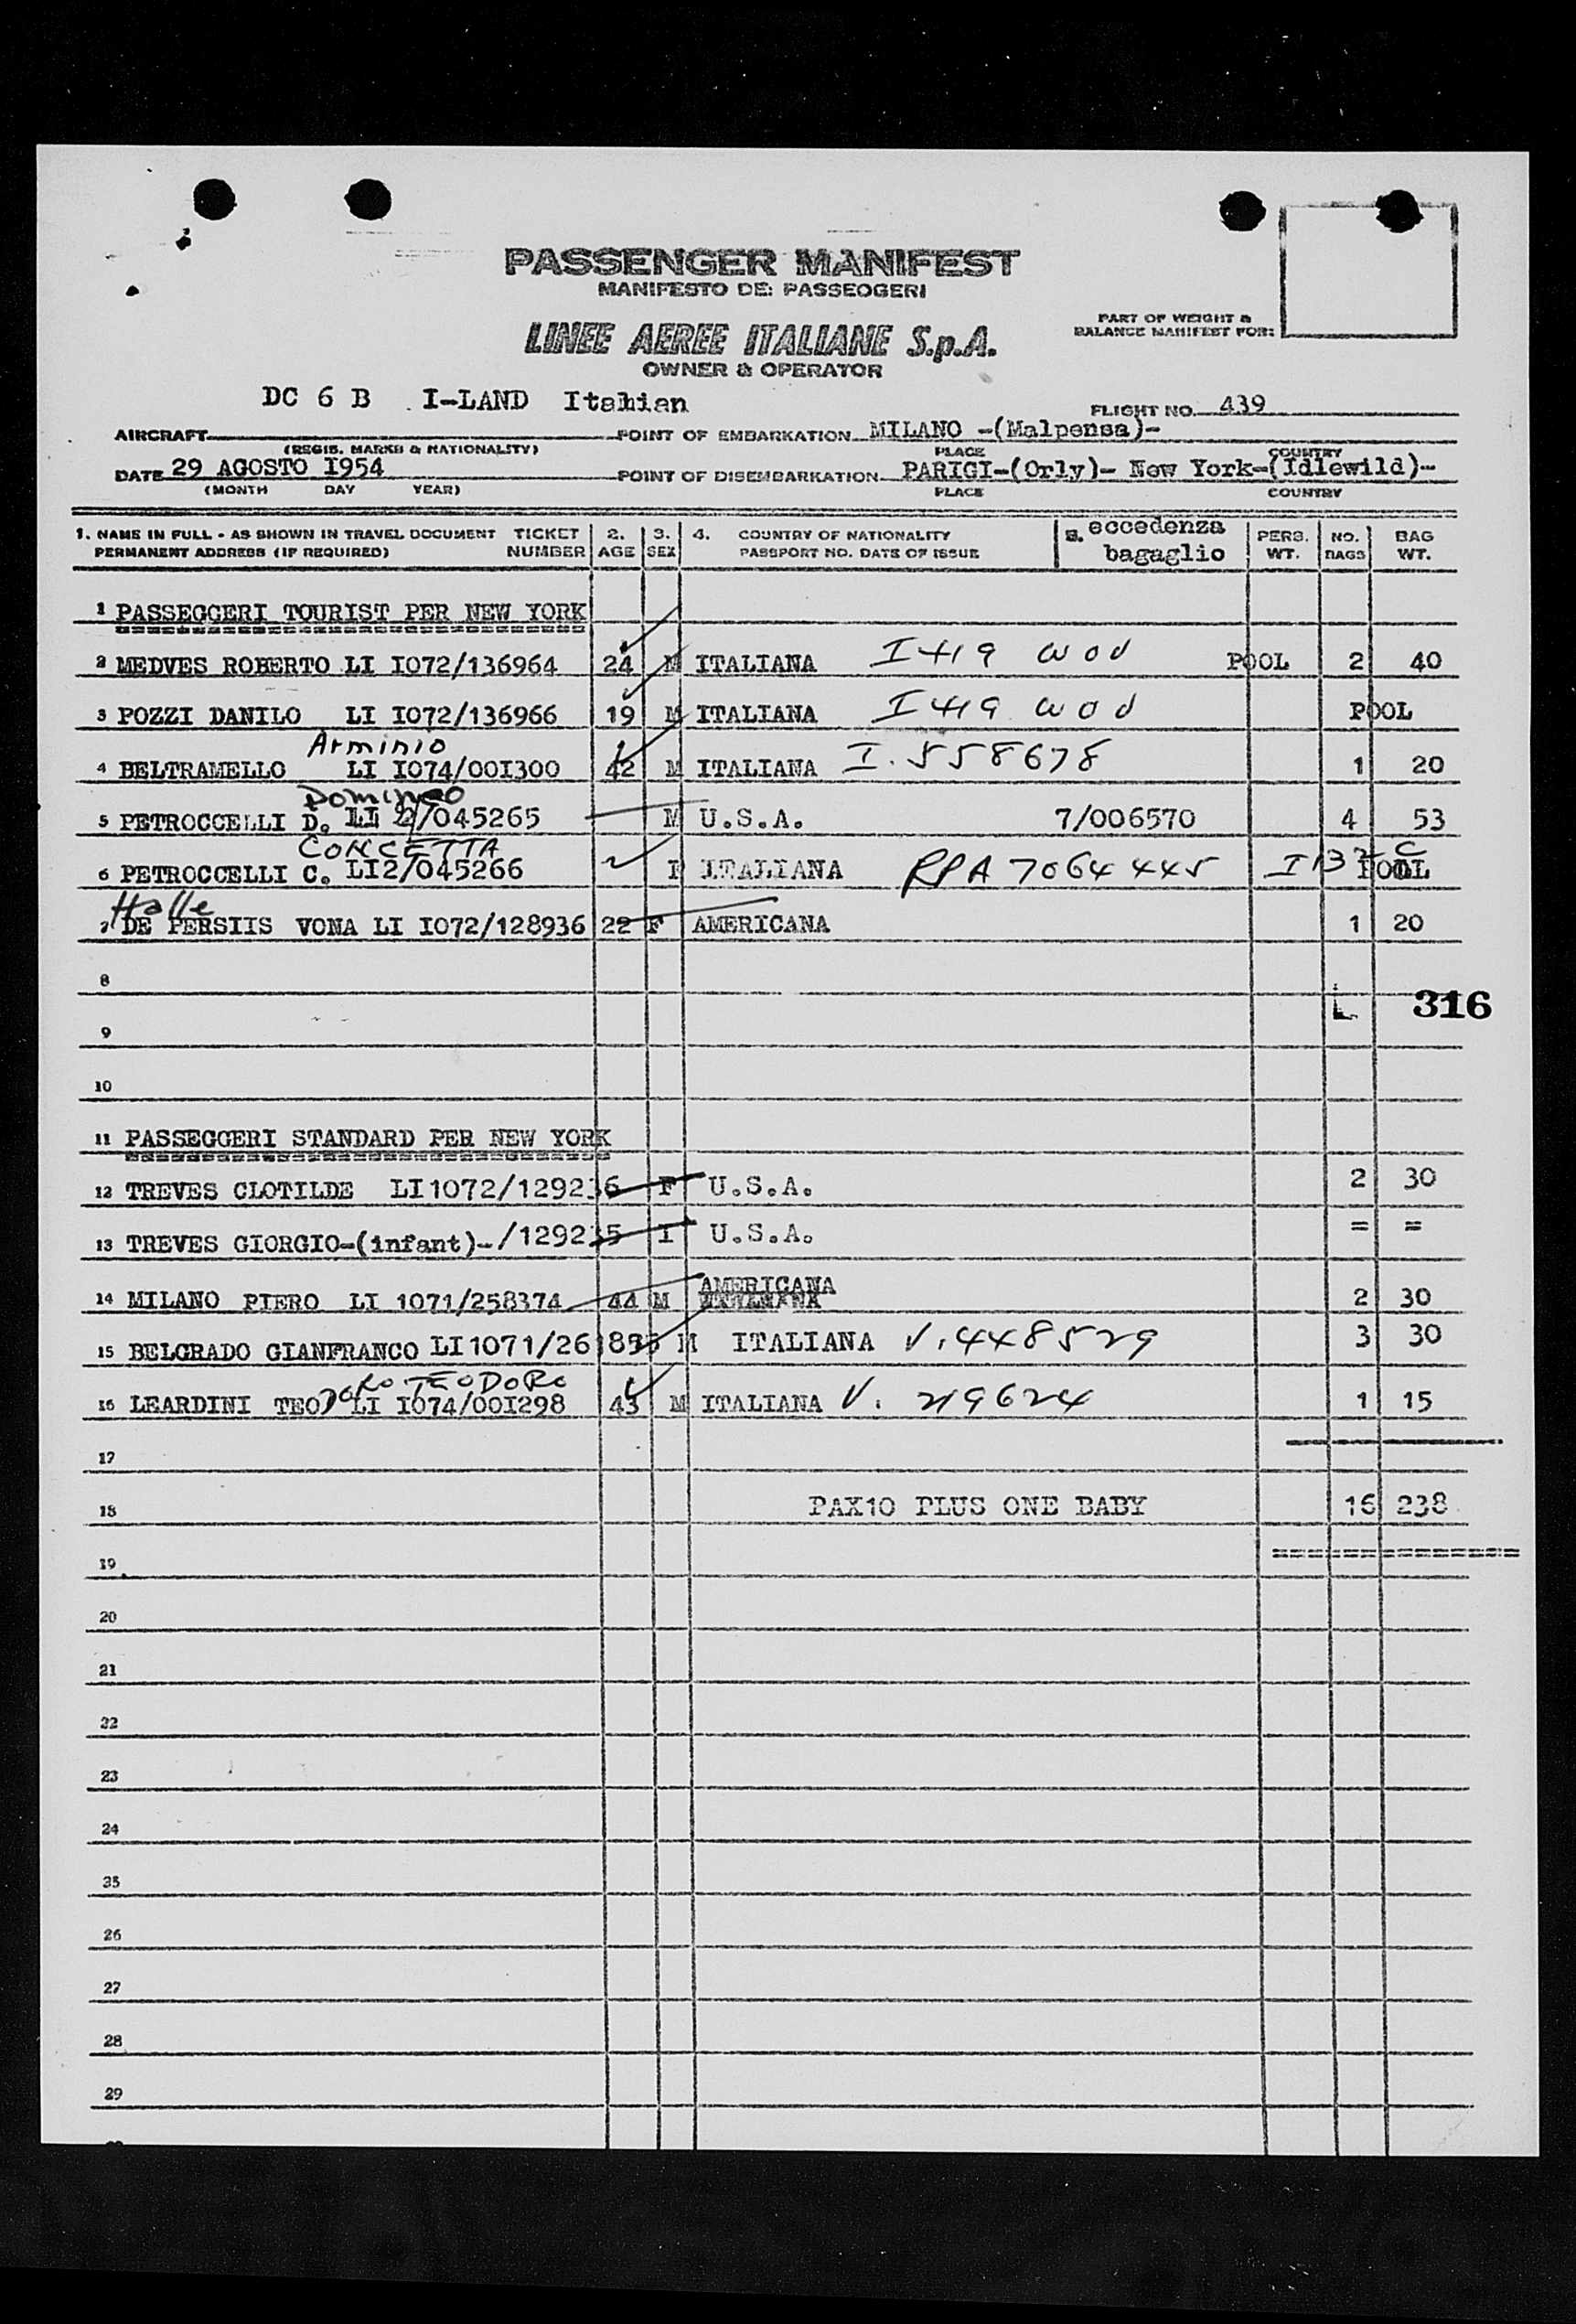 PASSENGER MANIFEST
MANIFESTO DEI PASSEGGERI
LINEE AEREE ITALIANE S.p.A.
OWNER & OPERATOR
PART OF WEIGHT &
BALANCE MANIFEST FOR:
DC 6 B I-LAND Italian
FLIGHT NO. 439
AIRCRAFT POINT OF EMBARKATION MILANO -(Malpensa)-
(REGIS. MARKS & NATIONALITY) PLACE COUNTRY
DATE 29 AGOSTO I954 POINT OF DISEMBARKATION PARIGI-(Orly)- New York-(Idlewild)-
(MONTH DAY YEAR) PLACE COUNTRY
1. NAME IN FULL - AS SHOWN IN TRAVEL DOCUMENT TICKET 2. 3. 4. COUNTRY OF NATIONALITY 5. eccedenza PERS. NO. BAG
PERMANENT ADDRESS (IF REQUIRED) NUMBER AGE SEX PASSPORT NO. DATE OF ISSUE bagaglio WT. BAGS WT.
1 PASSEGGERI TOURIST PER NEW YORK
2 MEDVES ROBERTO LI I072/136964 24 M ITALIANA I 419 WOD POOL 2 40
3 POZZI DANILO LI I072/136966 19 M ITALIANA I 419 WOD POOL
Arminio
4 BELTRAMELLO LI I074/00I300 42 M ITALIANA I. 558678 1 20
Domineo
5 PETROCCELLI D. LI 2/045265 M U.S.A. 7/006570 4 53
CONCETTA
6 PETROCCELLI C. LI2/045266 F ITALIANA RPA 7064445 I 132 C POOL
Halle
7 DE PERSIIS VONA LI I072/128936 22 F AMERICANA 1 20
8
316
9
10
11 PASSEGGERI STANDARD PER NEW YORK
12 TREVES CLOTILDE LI1072/129236 F U.S.A. 2 30
13 TREVES GIORGIO-(infant)-/129235 I U.S.A. = =
AMERICANA
14 MILANO PIERO LI 1071/258374 44 M 2 30
15 BELGRADO GIANFRANCO LI1071/261 M ITALIANA V. 448529 3 30
TEODORO
16 LEARDINI TEO LI I074/00I298 43 M ITALIANA V. 219624 1 15
17
18 PAX10 PLUS ONE BABY 16 238
19
20
21
22
23
24
25
26
27
28
29